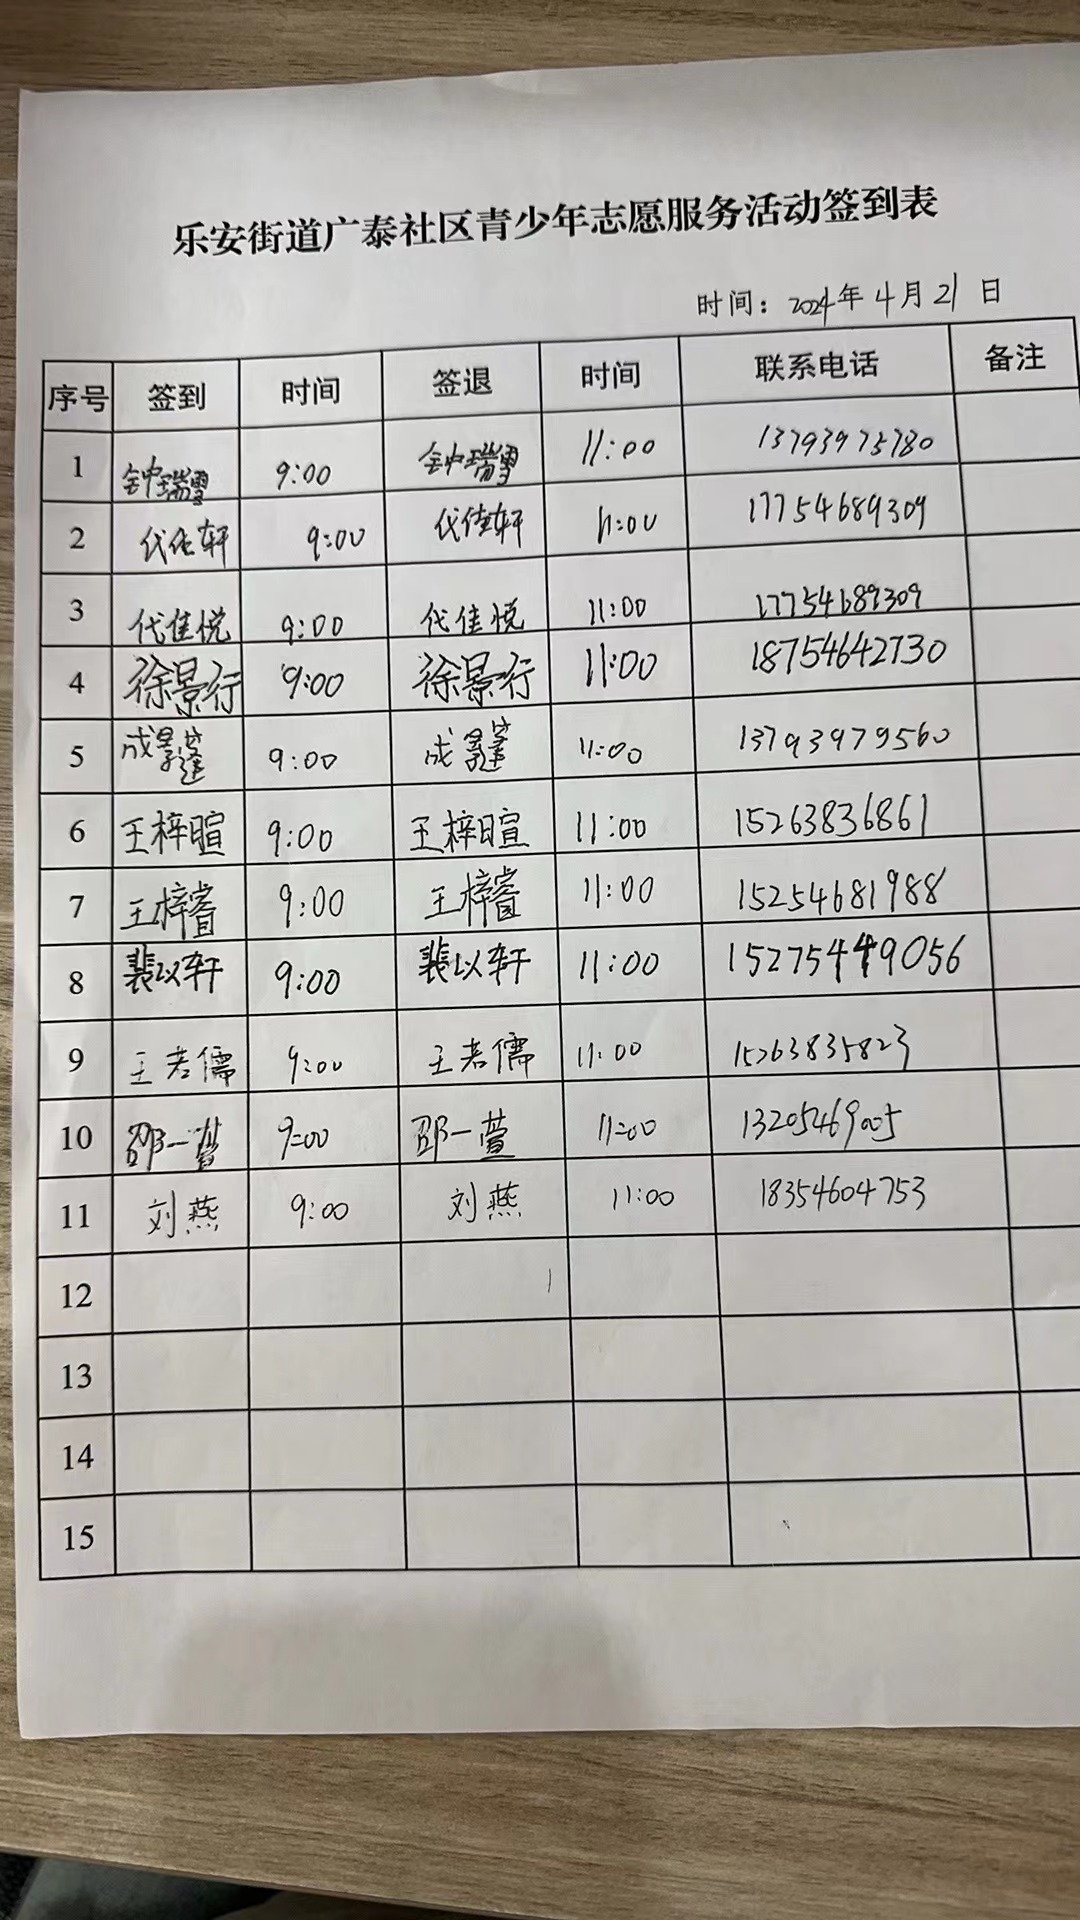 乐安街道广泰社区青少年志愿服务活动签到表
时间：2024年4月21日
序号 签到 时间 签退 时间 联系电话 备注
1 钟瑞雪 9:00 钟瑞雪 11:00 13793975780
2 代佳轩 9:00 代佳轩 11:00 17754689309
3 代佳悦 9:00 代佳悦 11:00 17754689309
4 徐景行 9:00 徐景行 11:00 18754642730
5 成 9:00 成 11:00 13793979560
6 王梓暄 9:00 王梓暄 11:00 15263836861
7 王梓睿 9:00 王梓睿 11:00 15254681988
8 裴以轩 9:00 裴以轩 11:00 15275449056
9 王若儒 9:00 王若儒 11:00 15263835823
10 邵一萱 9:00 邵一萱 11:00 13205469005
11 刘燕 9:00 刘燕 11:00 18354604753
12
13
14
15